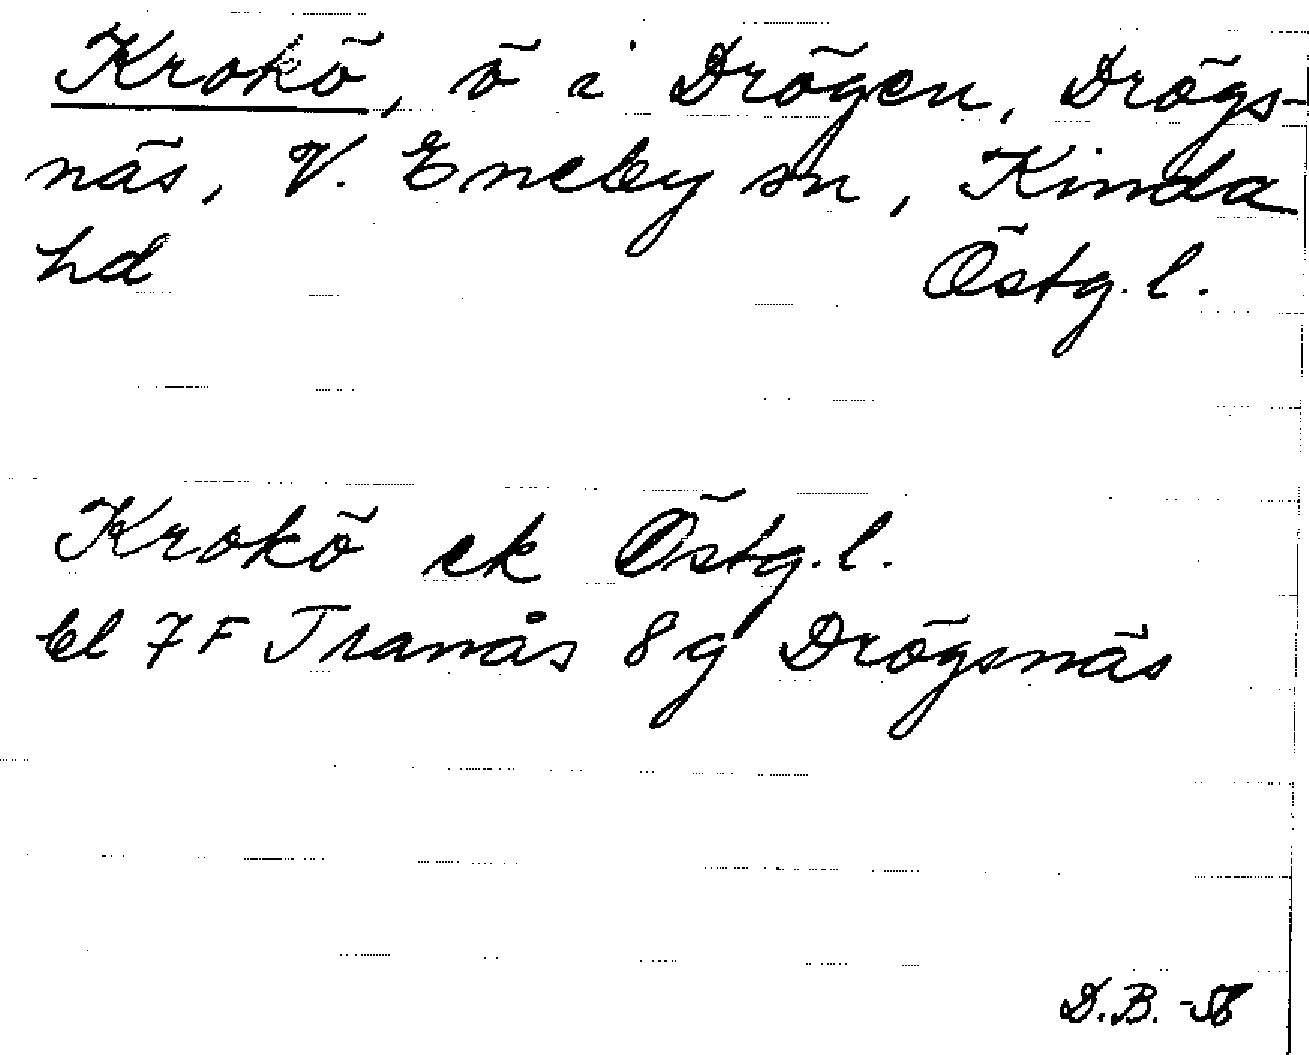 Krokö, ö i Drögen, Drögs-
näs, V. Eneby sn, Kinda
hd Östg. l.
Krokö ek Östg. l.
bl 7F Tranås 8g Drögsnäs
D.B. -58